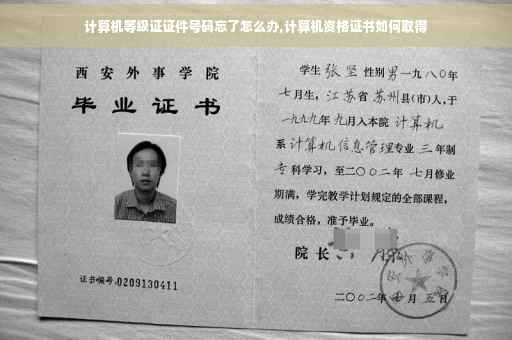 计算机等级证证件号码忘了怎么办,计算机资格证书如何取得
西安外事学院
毕业证书
证书编号:0209130411
学生 张坚 性别 男 一九八〇年
七月生，江苏省 苏州 县(市)人,于
一九九九年 九月入本院 计算机
系 计算机信息管理 专业 三 年制
专科学习，至二〇〇二年 七月修业
期满，学完教学计划规定的全部课程，
成绩合格，准予毕业。
院长
二〇〇二年 七月 五日